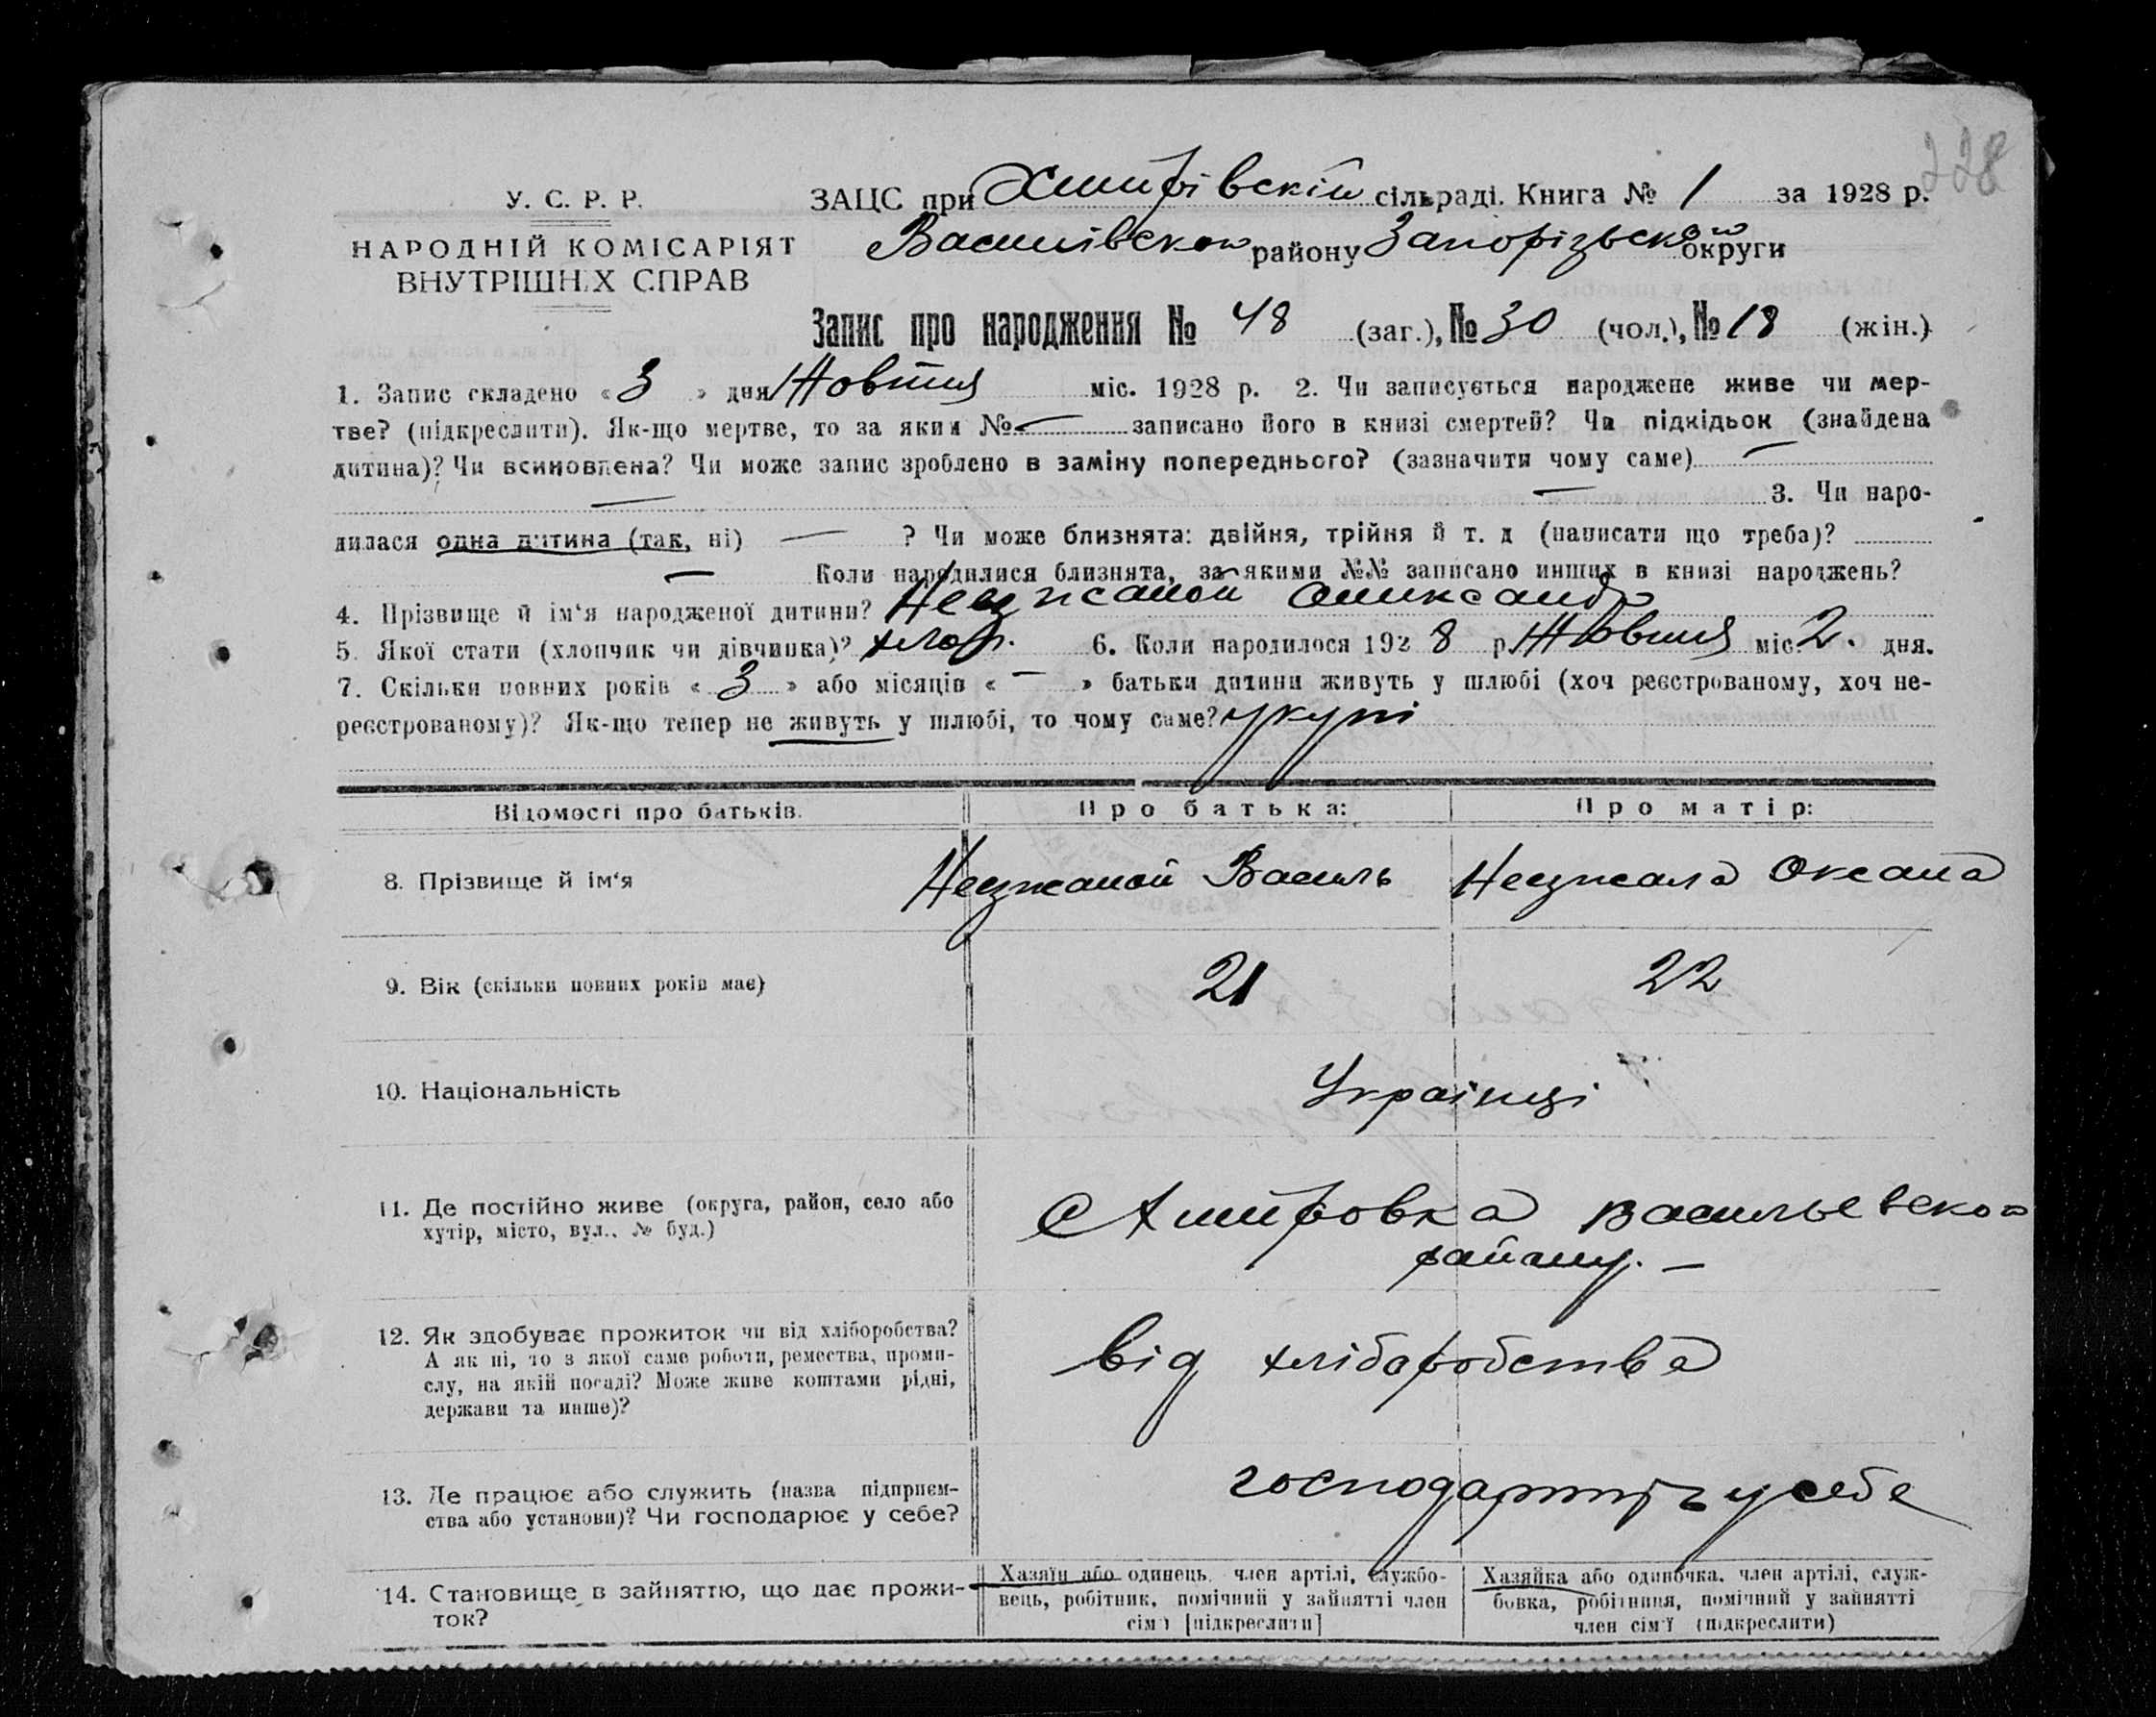 228
У. С. Р. Р.
НАРОДНІЙ КОМІСАРІЯТ
ВНУТРІШНіХ СПРАВ
ЗАЦС при сільраді. Книга № 1 за 1928 р.
Василівской району Запорізької округи
Запис про народження № 48 (заг.), № 30 (чол.), № 18 (жін.)
1. Запис складено « 3 » дня Жовтня міс. 1928 р. 2. Чи записується народжене живе чи мер-
тве? (підкреслити). Як-що мертве, то за яким № — записано його в книзі смертей? Чи підкідьок (знайдена
дитина)? Чи всиновлена? Чи може запис зроблено в заміну попереднього? (зазначити чому саме) —
— — 3. Чи наро-
дилася одна дитина (так, ні) — ? Чи може близнята: двійня, трійня й т. д (написати що треба)?
— Коли народилися близнята, за якими №№ записано инших в книзі народжень?
4. Прізвище й ім‘я народженої дитини? Олександр
5. Якої стати (хлопчик чи дівчинка)? хлоп. 6. Коли народилося 192 8 р. Жовтня міс. 2. дня.
7. Скільки повних років « 3 » або місяців « — » батьки дитини живуть у шлюбі (хоч реєстрованому, хоч не-
реєстрованому)? Як-що тепер не живуть у шлюбі, то чому саме? укупі
Відомості про батьків. Про батька: Про матір:
8. Прізвище й ім‘я Василь Оксана
9. Вік (скільки повних років має) 21 22
10. Національність Українці
11. Де постійно живе (округа, район, село або
хутір, місто, вул., № буд.)
с Васильевской
району. —
12. Як здобуває прожиток чи від хліборобства?
А як ні, то з якої саме роботи, ремества, проми-
слу, на якій посаді? Може живе коштами рідні,
держави та инше)?
від хліборобства
13. Де працює або служить (назва підприєм-
ства або установи)? Чи господарює у себе?
у себе
14. Становище в зайняттю, що дає прожи-
ток?
Хазяїн або одинець, член артілі, службо-
вець, робітник, помічний у зайнятті член
сім‘ї [підкреслити]
Хазяйка або одиночка, член артілі, служ-
бовка, робітниця, помічний у зайнятті
член сім‘ї (підкреслити)